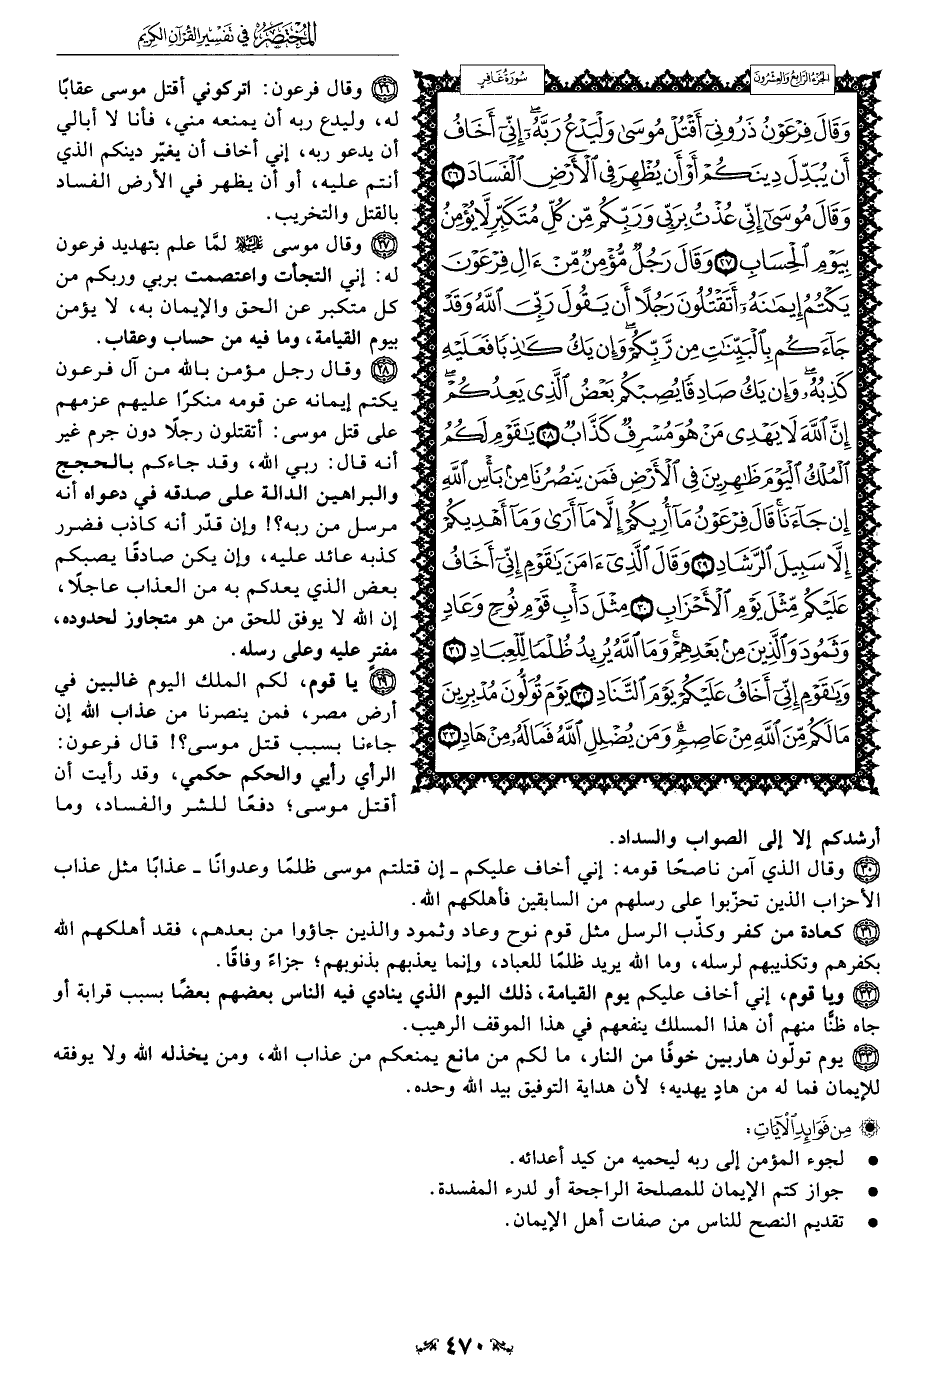 المختصر في تفسير القرآن الكريم
الجزء الرابع والعشرون
سورة غافر
وَقَالَ فِرْعَوْنُ ذَرُونِيٓ أَقْتُلْ مُوسَىٰ وَلْيَدْعُ رَبَّهُۥٓۖ إِنِّيٓ أَخَافُ
أَن يُبَدِّلَ دِينَكُمْ أَوْ أَن يُظْهِرَ فِي ٱلْأَرْضِ ٱلْفَسَادَ ٢٦
وَقَالَ مُوسَىٰٓ إِنِّي عُذْتُ بِرَبِّي وَرَبِّكُم مِّن كُلِّ مُتَكَبِّرٍ لَّا يُؤْمِنُ
بِيَوْمِ ٱلْحِسَابِ ٢٧ وَقَالَ رَجُلٌ مُّؤْمِنٌ مِّنْ ءَالِ فِرْعَوْنَ
يَكْتُمُ إِيمَٰنَهُۥٓ أَتَقْتُلُونَ رَجُلًا أَن يَقُولَ رَبِّيَ ٱللَّهُ وَقَدْ
جَآءَكُم بِٱلْبَيِّنَٰتِ مِن رَّبِّكُمْۖ وَإِن يَكُ كَٰذِبًا فَعَلَيْهِ
كَذِبُهُۥۖ وَإِن يَكُ صَادِقًا يُصِبْكُم بَعْضُ ٱلَّذِي يَعِدُكُمْۖ
إِنَّ ٱللَّهَ لَا يَهْدِي مَنْ هُوَ مُسْرِفٌ كَذَّابٌ ٢٨ يَٰقَوْمِ لَكُمُ
ٱلْمُلْكُ ٱلْيَوْمَ ظَٰهِرِينَ فِي ٱلْأَرْضِ فَمَن يَنصُرُنَا مِنۢ بَأْسِ ٱللَّهِ
إِن جَآءَنَاۚ قَالَ فِرْعَوْنُ مَآ أُرِيكُمْ إِلَّا مَآ أَرَىٰ وَمَآ أَهْدِيكُمْ
إِلَّا سَبِيلَ ٱلرَّشَادِ ٢٩ وَقَالَ ٱلَّذِيٓ ءَامَنَ يَٰقَوْمِ إِنِّيٓ أَخَافُ
عَلَيْكُم مِّثْلَ يَوْمِ ٱلْأَحْزَابِ ٣٠ مِثْلَ دَأْبِ قَوْمِ نُوحٍ وَعَادٍ
وَثَمُودَ وَٱلَّذِينَ مِنۢ بَعْدِهِمْۚ وَمَا ٱللَّهُ يُرِيدُ ظُلْمًا لِّلْعِبَادِ ٣١
وَيَٰقَوْمِ إِنِّيٓ أَخَافُ عَلَيْكُمْ يَوْمَ ٱلتَّنَادِ ٣٢ يَوْمَ تُوَلُّونَ مُدْبِرِينَ
مَا لَكُم مِّنَ ٱللَّهِ مِنْ عَاصِمٍۗ وَمَن يُضْلِلِ ٱللَّهُ فَمَا لَهُۥ مِنْ هَادٍ ٣٣
٢٦ وقال فرعون: اتركوني أقتل موسى عقابًا
له، وليدع ربه أن يمنعه مني، فأنا لا أبالي
أن يدعو ربه، إني أخاف أن يغيّر دينكم الذي
أنتم عليه، أو أن يظهر في الأرض الفساد
بالقتل والتخريب.
٢٧ وقال موسى ﷺ لمَّا علم بتهديد فرعون
له: إني التجأت واعتصمت بربي وربكم من
كل متكبر عن الحق والإيمان به، لا يؤمن
بيوم القيامة، وما فيه من حساب وعقاب.
٢٨ وقال رجل مؤمن بالله من آل فرعون
يكتم إيمانه عن قومه منكرًا عليهم عزمهم
على قتل موسى: أتقتلون رجلًا دون جرم غير
أنه قال: ربي الله، وقد جاءكم بالحجج
والبراهين الدالة على صدقه في دعواه أنه
مرسل من ربه؟! وإن قدّر أنه كاذب فضرر
كذبه عائد عليه، وإن يكن صادقًا يصبكم
بعض الذي يعدكم به من العذاب عاجلًا،
إن الله لا يوفق للحق من هو متجاوز لحدوده،
مفترٍ عليه وعلى رسله.
٢٩ يا قوم، لكم الملك اليوم غالبين في
أرض مصر، فمن ينصرنا من عذاب الله إن
جاءنا بسبب قتل موسى؟! قال فرعون:
الرأي رأيي والحكم حكمي، وقد رأيت أن
أقتل موسى؛ دفعًا للشر والفساد، وما
أرشدكم إلا إلى الصواب والسداد.
٣٠ وقال الذي آمن ناصحًا قومه: إني أخاف عليكم ـ إن قتلتم موسى ظلمًا وعدوانًا ـ عذابًا مثل عذاب
الأحزاب الذين تحزّبوا على رسلهم من السابقين فأهلكهم الله.
٣١ كعادة من كفر وكذّب الرسل مثل قوم نوح وعاد وثمود والذين جاؤوا من بعدهم، فقد أهلكهم الله
بكفرهم وتكذيبهم لرسله، وما الله يريد ظلمًا للعباد، وإنما يعذبهم بذنوبهم؛ جزاءً وفاقًا.
٣٢ ويا قوم، إني أخاف عليكم يوم القيامة، ذلك اليوم الذي ينادي فيه الناس بعضهم بعضًا بسبب قرابة أو
جاه ظنًّا منهم أن هذا المسلك ينفعهم في هذا الموقف الرهيب.
٣٣ يوم تولّون هاربين خوفًا من النار، ما لكم من مانع يمنعكم من عذاب الله، ومن يخذله الله ولا يوفقه
للإيمان فما له من هادٍ يهديه؛ لأن هداية التوفيق بيد الله وحده.
من فوائد الآيات:
• لجوء المؤمن إلى ربه ليحميه من كيد أعدائه.
• جواز كتم الإيمان للمصلحة الراجحة أو لدرء المفسدة.
• تقديم النصح للناس من صفات أهل الإيمان.
٤٧٠